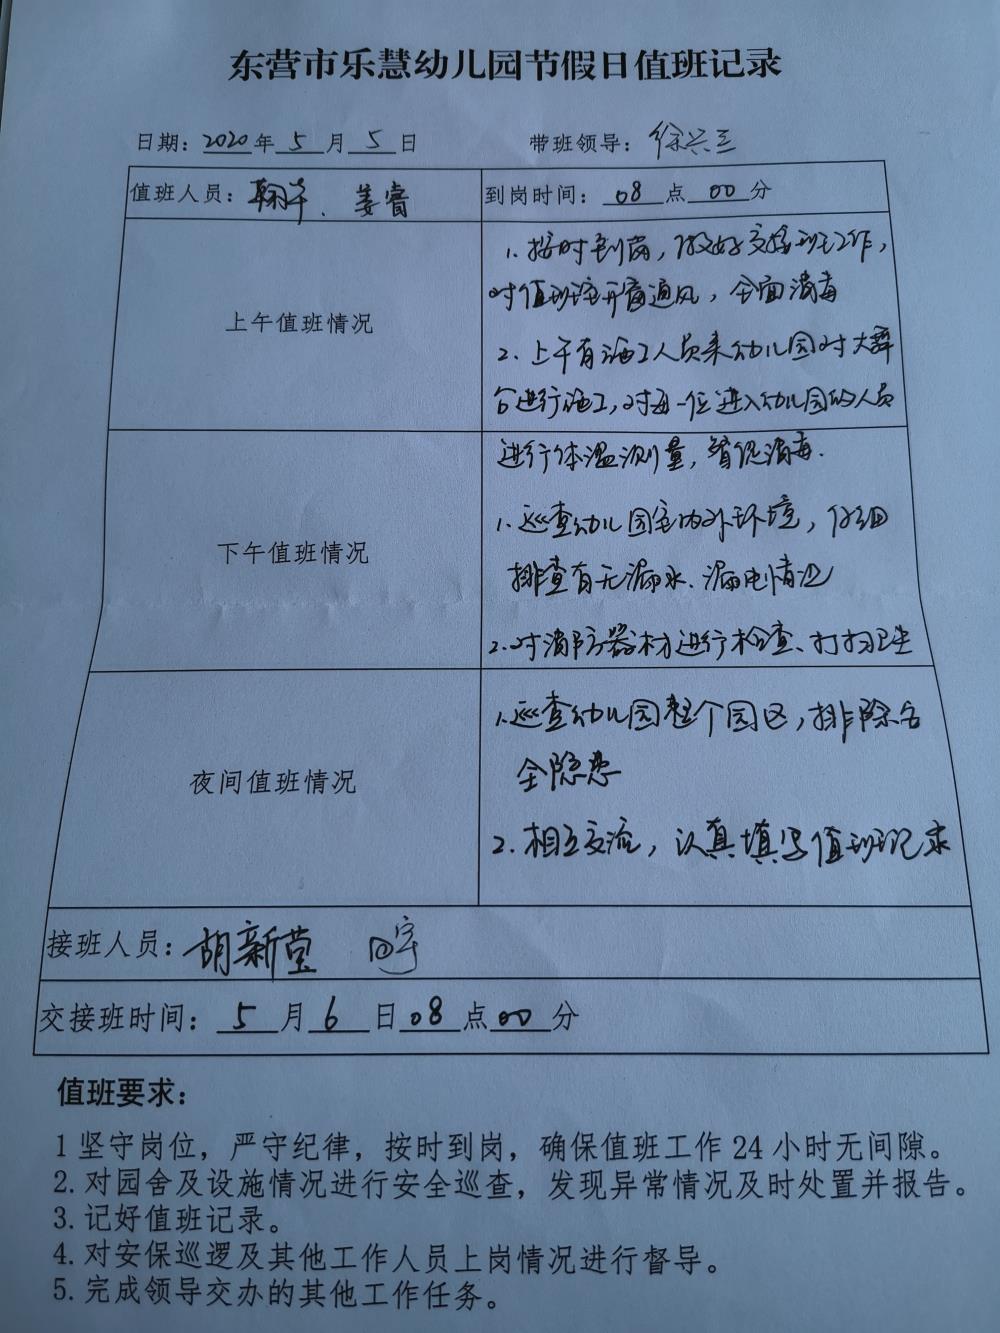 东营市乐慧幼儿园节假日值班记录
日期：2020年5月5日 带班领导：徐兴三
值班人员：　、姜睿 到岗时间：08点00分
上午值班情况
1. 按时到岗，做好交接班工作，
对值班室开窗通风，全面消毒
2. 上午有施工人员来幼儿园对大舞
台进行施工，对每一位进入幼儿园的人员
进行体温测量，消毒.
下午值班情况
1. 巡查幼儿园室内外环境，仔细
排查有无漏水、漏电情况
2. 对消防器材进行检查、打扫卫生
夜间值班情况
1. 巡查幼儿园整个园区，排除安
全隐患
2. 相互交流，认真填写值班记录
接班人员：胡新莹
交接班时间：5月6日08点00分
值班要求：
1 坚守岗位，严守纪律，按时到岗，确保值班工作24小时无间隙。
2. 对园舍及设施情况进行安全巡查，发现异常情况及时处置并报告。
3. 记好值班记录。
4. 对安保巡逻及其他工作人员上岗情况进行督导。
5. 完成领导交办的其他工作任务。